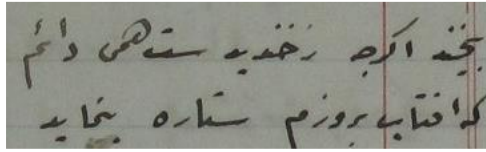 بخند اگرچه ز خندیدنت همی دانم
که افتاب بروزم ستاره بنماید